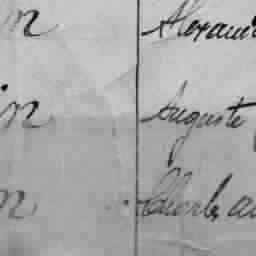 m Alexand
in Auguste
m Charles au